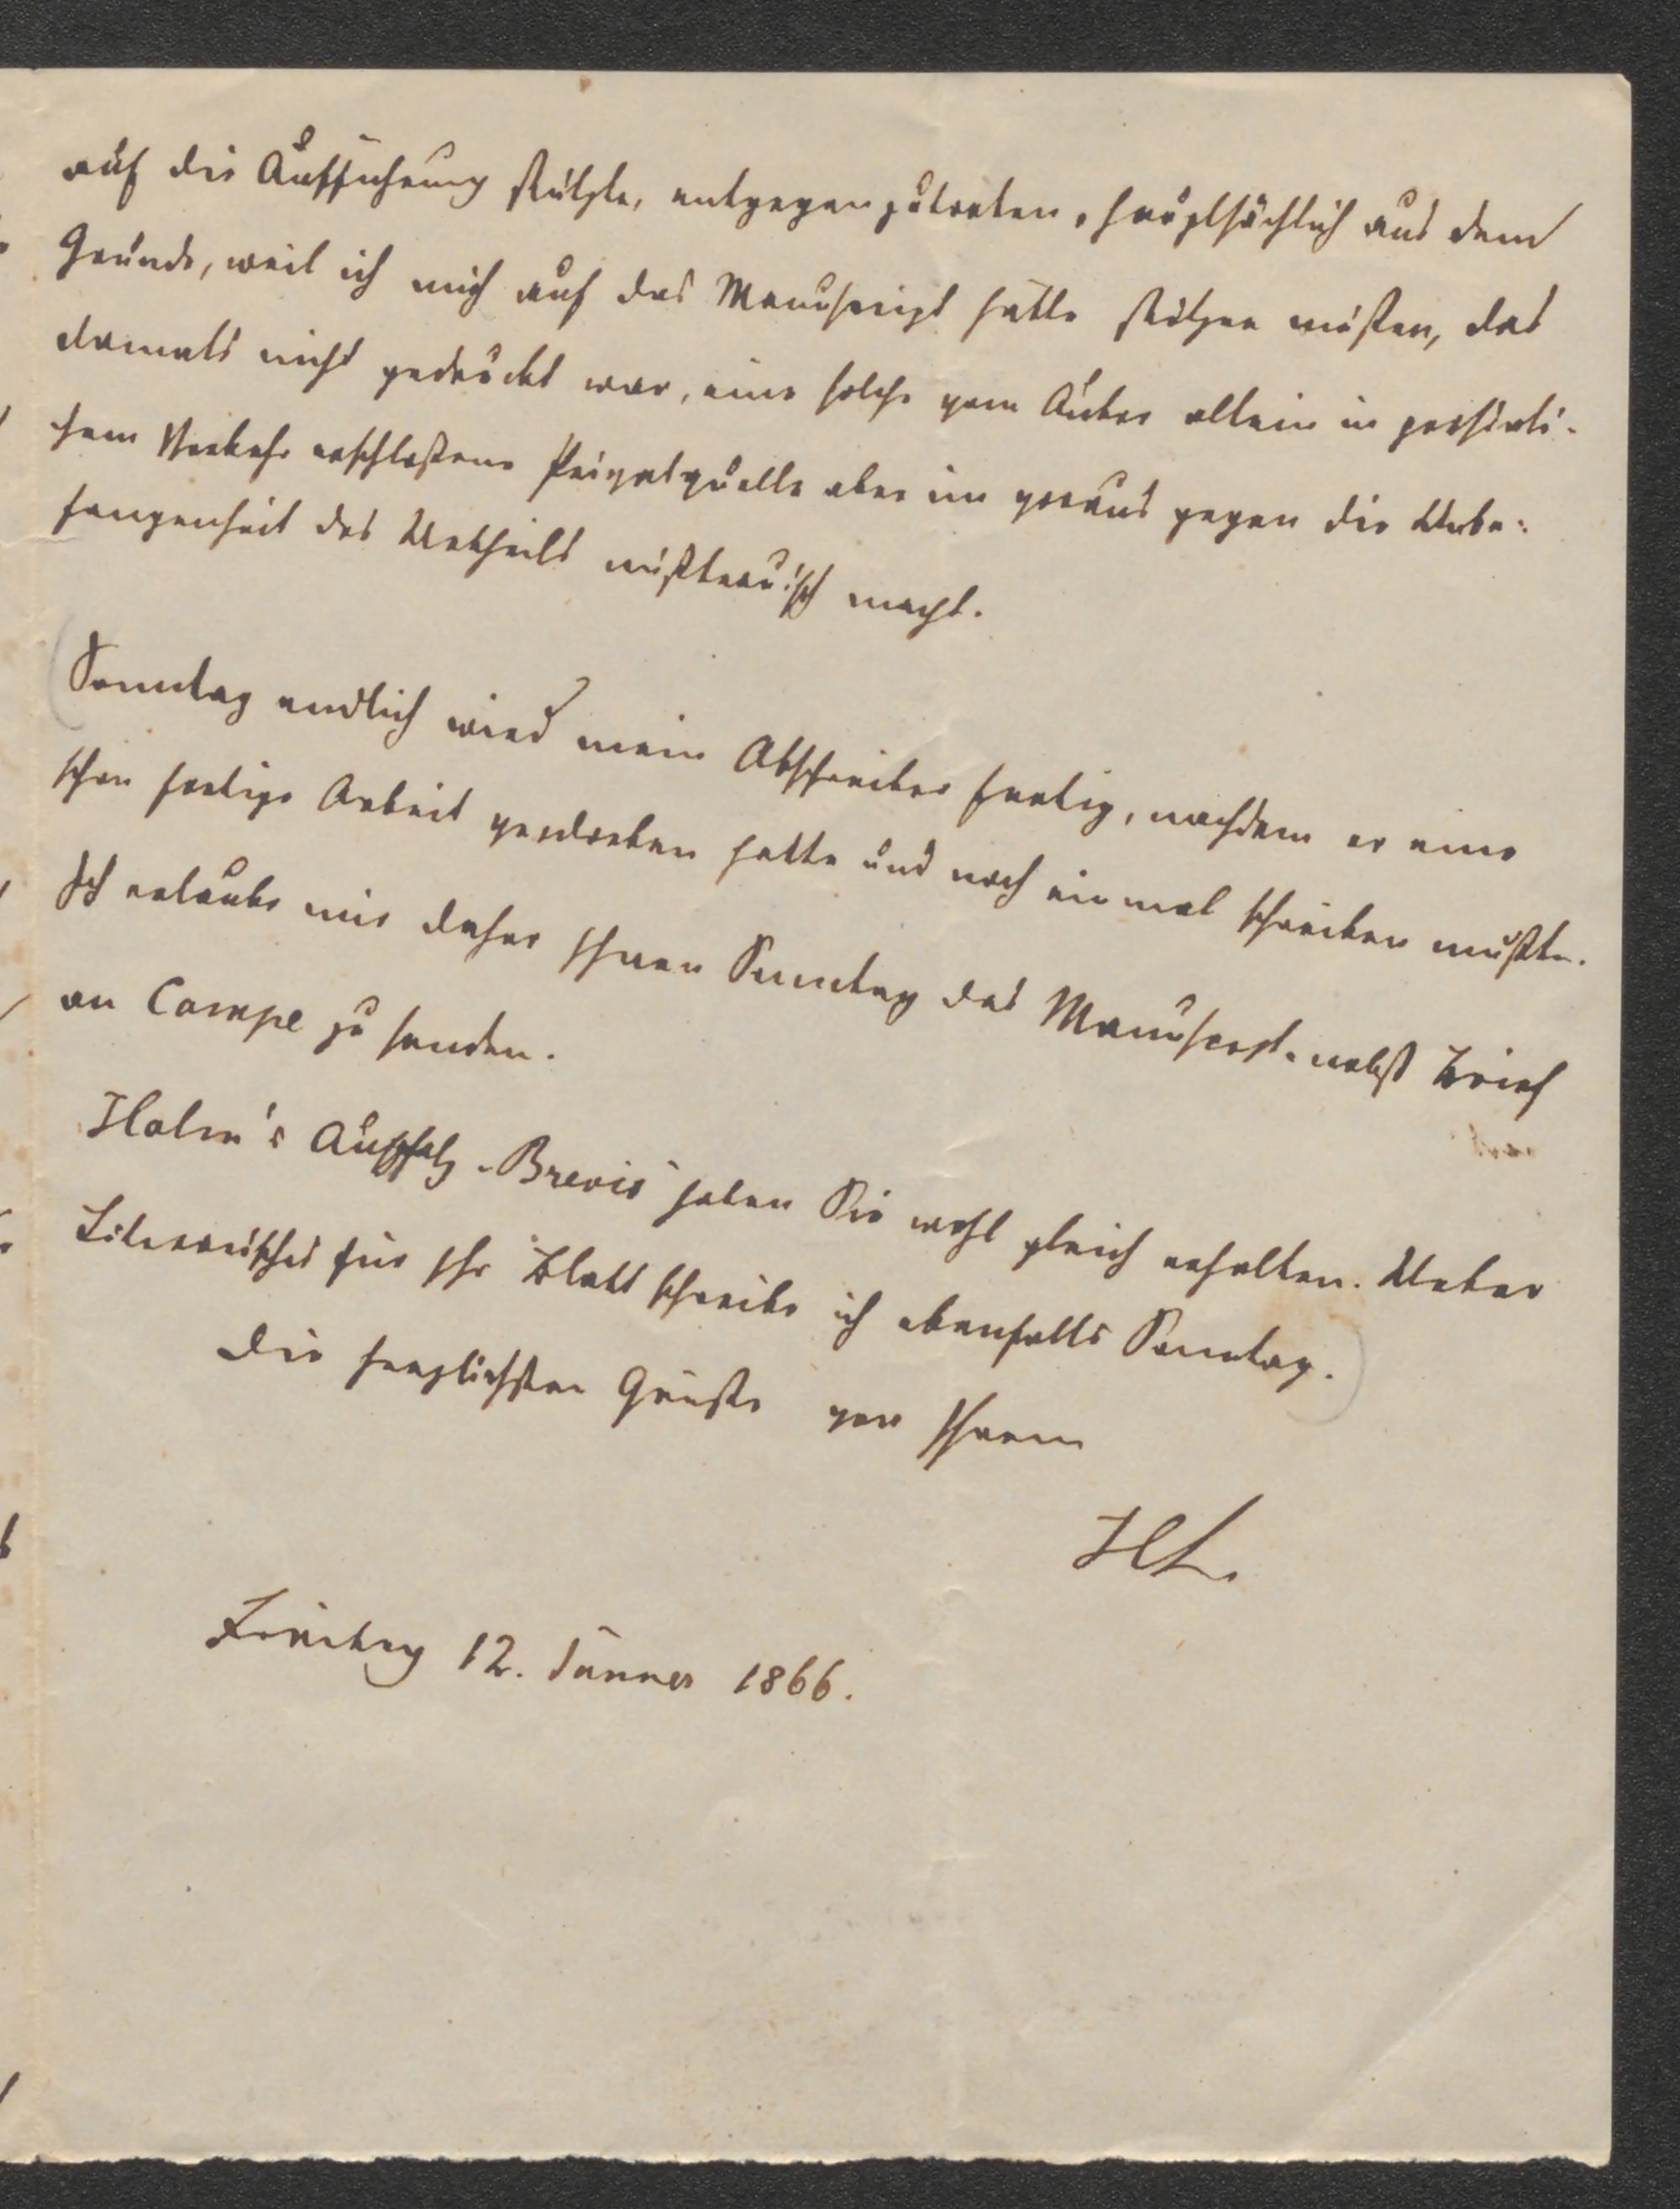 auf die Aufführung stützte, entgegenzutreten, hauptsächlich aus dem
Grunde, weil ich mich auf das Manuscript hätte stützen müßen, das
damals nicht gedruckt war, eine solche vom Autor allein in persönli-
chem Verkehr erschloßene Privatquelle aber im voraus gegen die Unbe-
fangenheit des Urtheils mißtrauisch macht.
Sonntag endlich wird mein Abschreiber fertig, nachdem er eine
schon fertige Arbeit verdorben hatte und noch einmal schreiben mußte.
Ich erlaube mir daher Ihnen Sonntag das Manuscrpt. nebst Brief
an Campe zu senden.
Halm's Aufsatz - Brevis haben Sie wohl gleich erhalten. Ueber
Literarisches für Ihr Blatt schreibe ich ebenfalls Sonntag.
Die herzlichsten Grüße von Ihrem
HL.
Freitag 12. Jänner 1866.